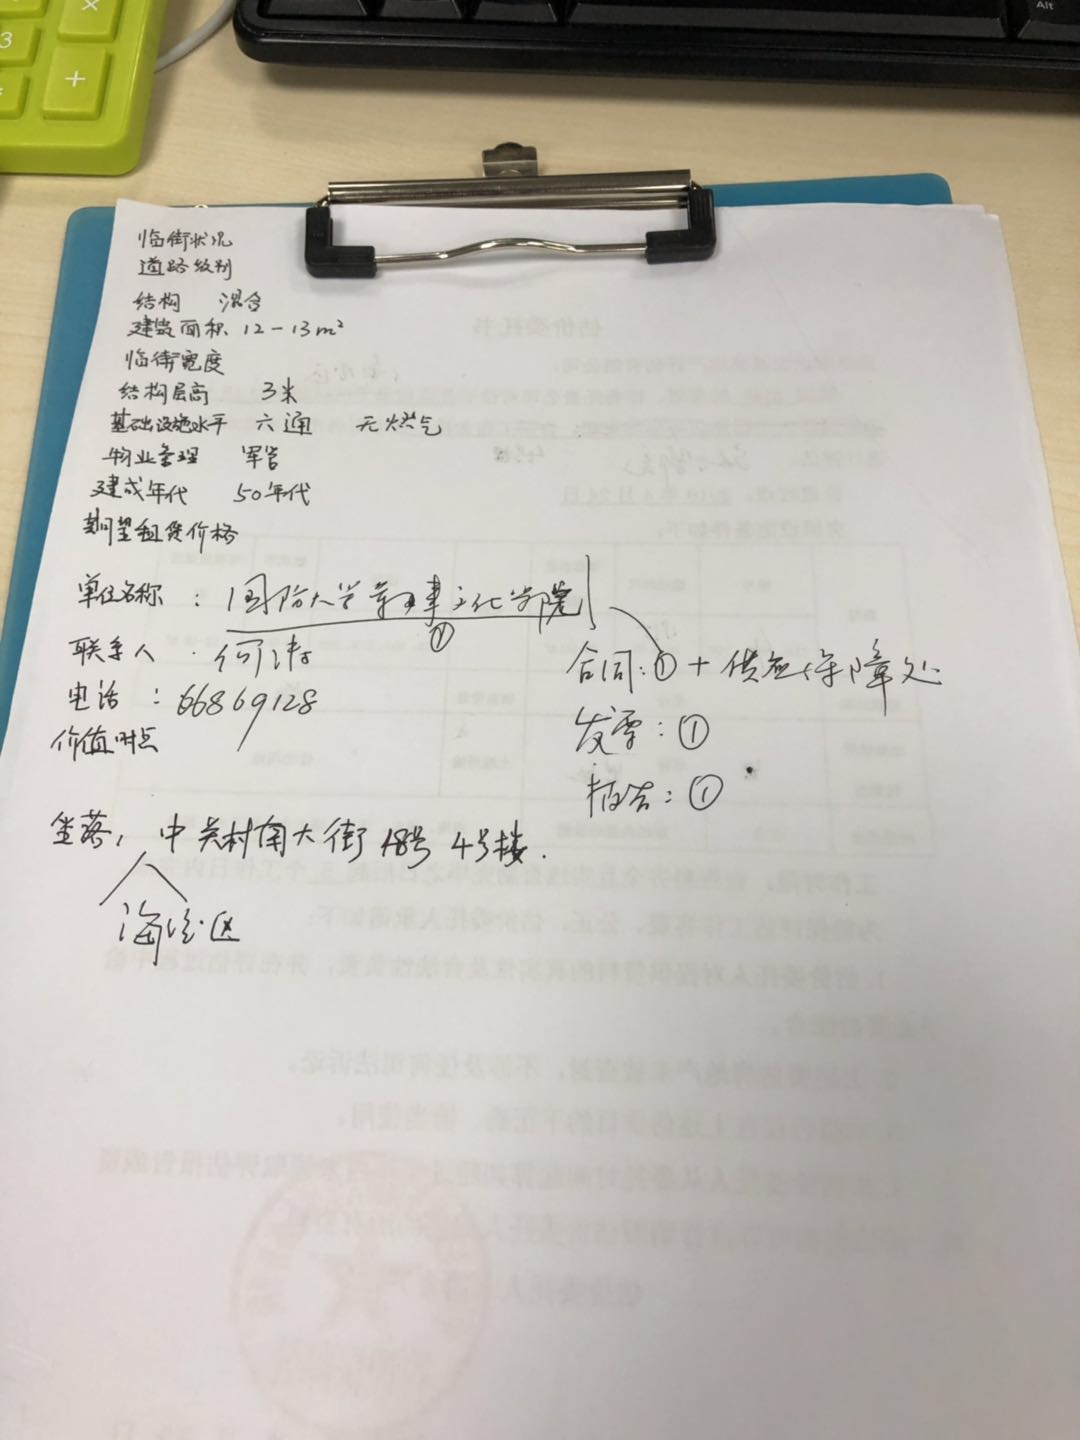 临街状况
道路级别
结构 混合
建筑面积 12-13m²
临街宽度
结构层高 3米
基础设施水平 六通 无燃气
物业管理 军管
建成年代 50年代
期望租赁价格
单位名称：国防大学军事文化学院
①
联系人：何涛
电话：66869128
价值时点
合同：①+供应保障处
发票：①
报告：①
坐落，中关村南大街18号4号楼.
海淀区